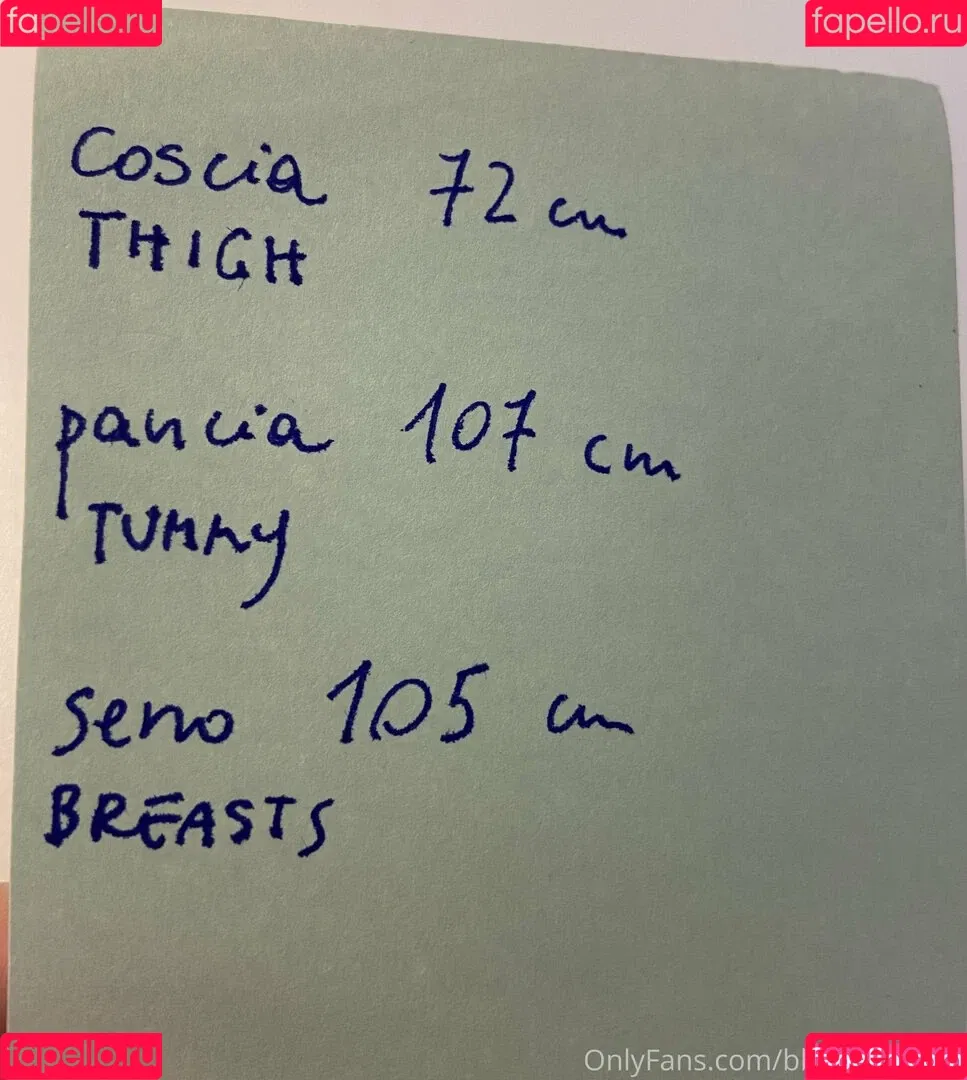 fapello.ru fapello.ru
Coscia 72 cm
THIGH
pancia 107 cm
TUMMY
seno 105 cm
BREASTS
fapello.ru fapello.ru